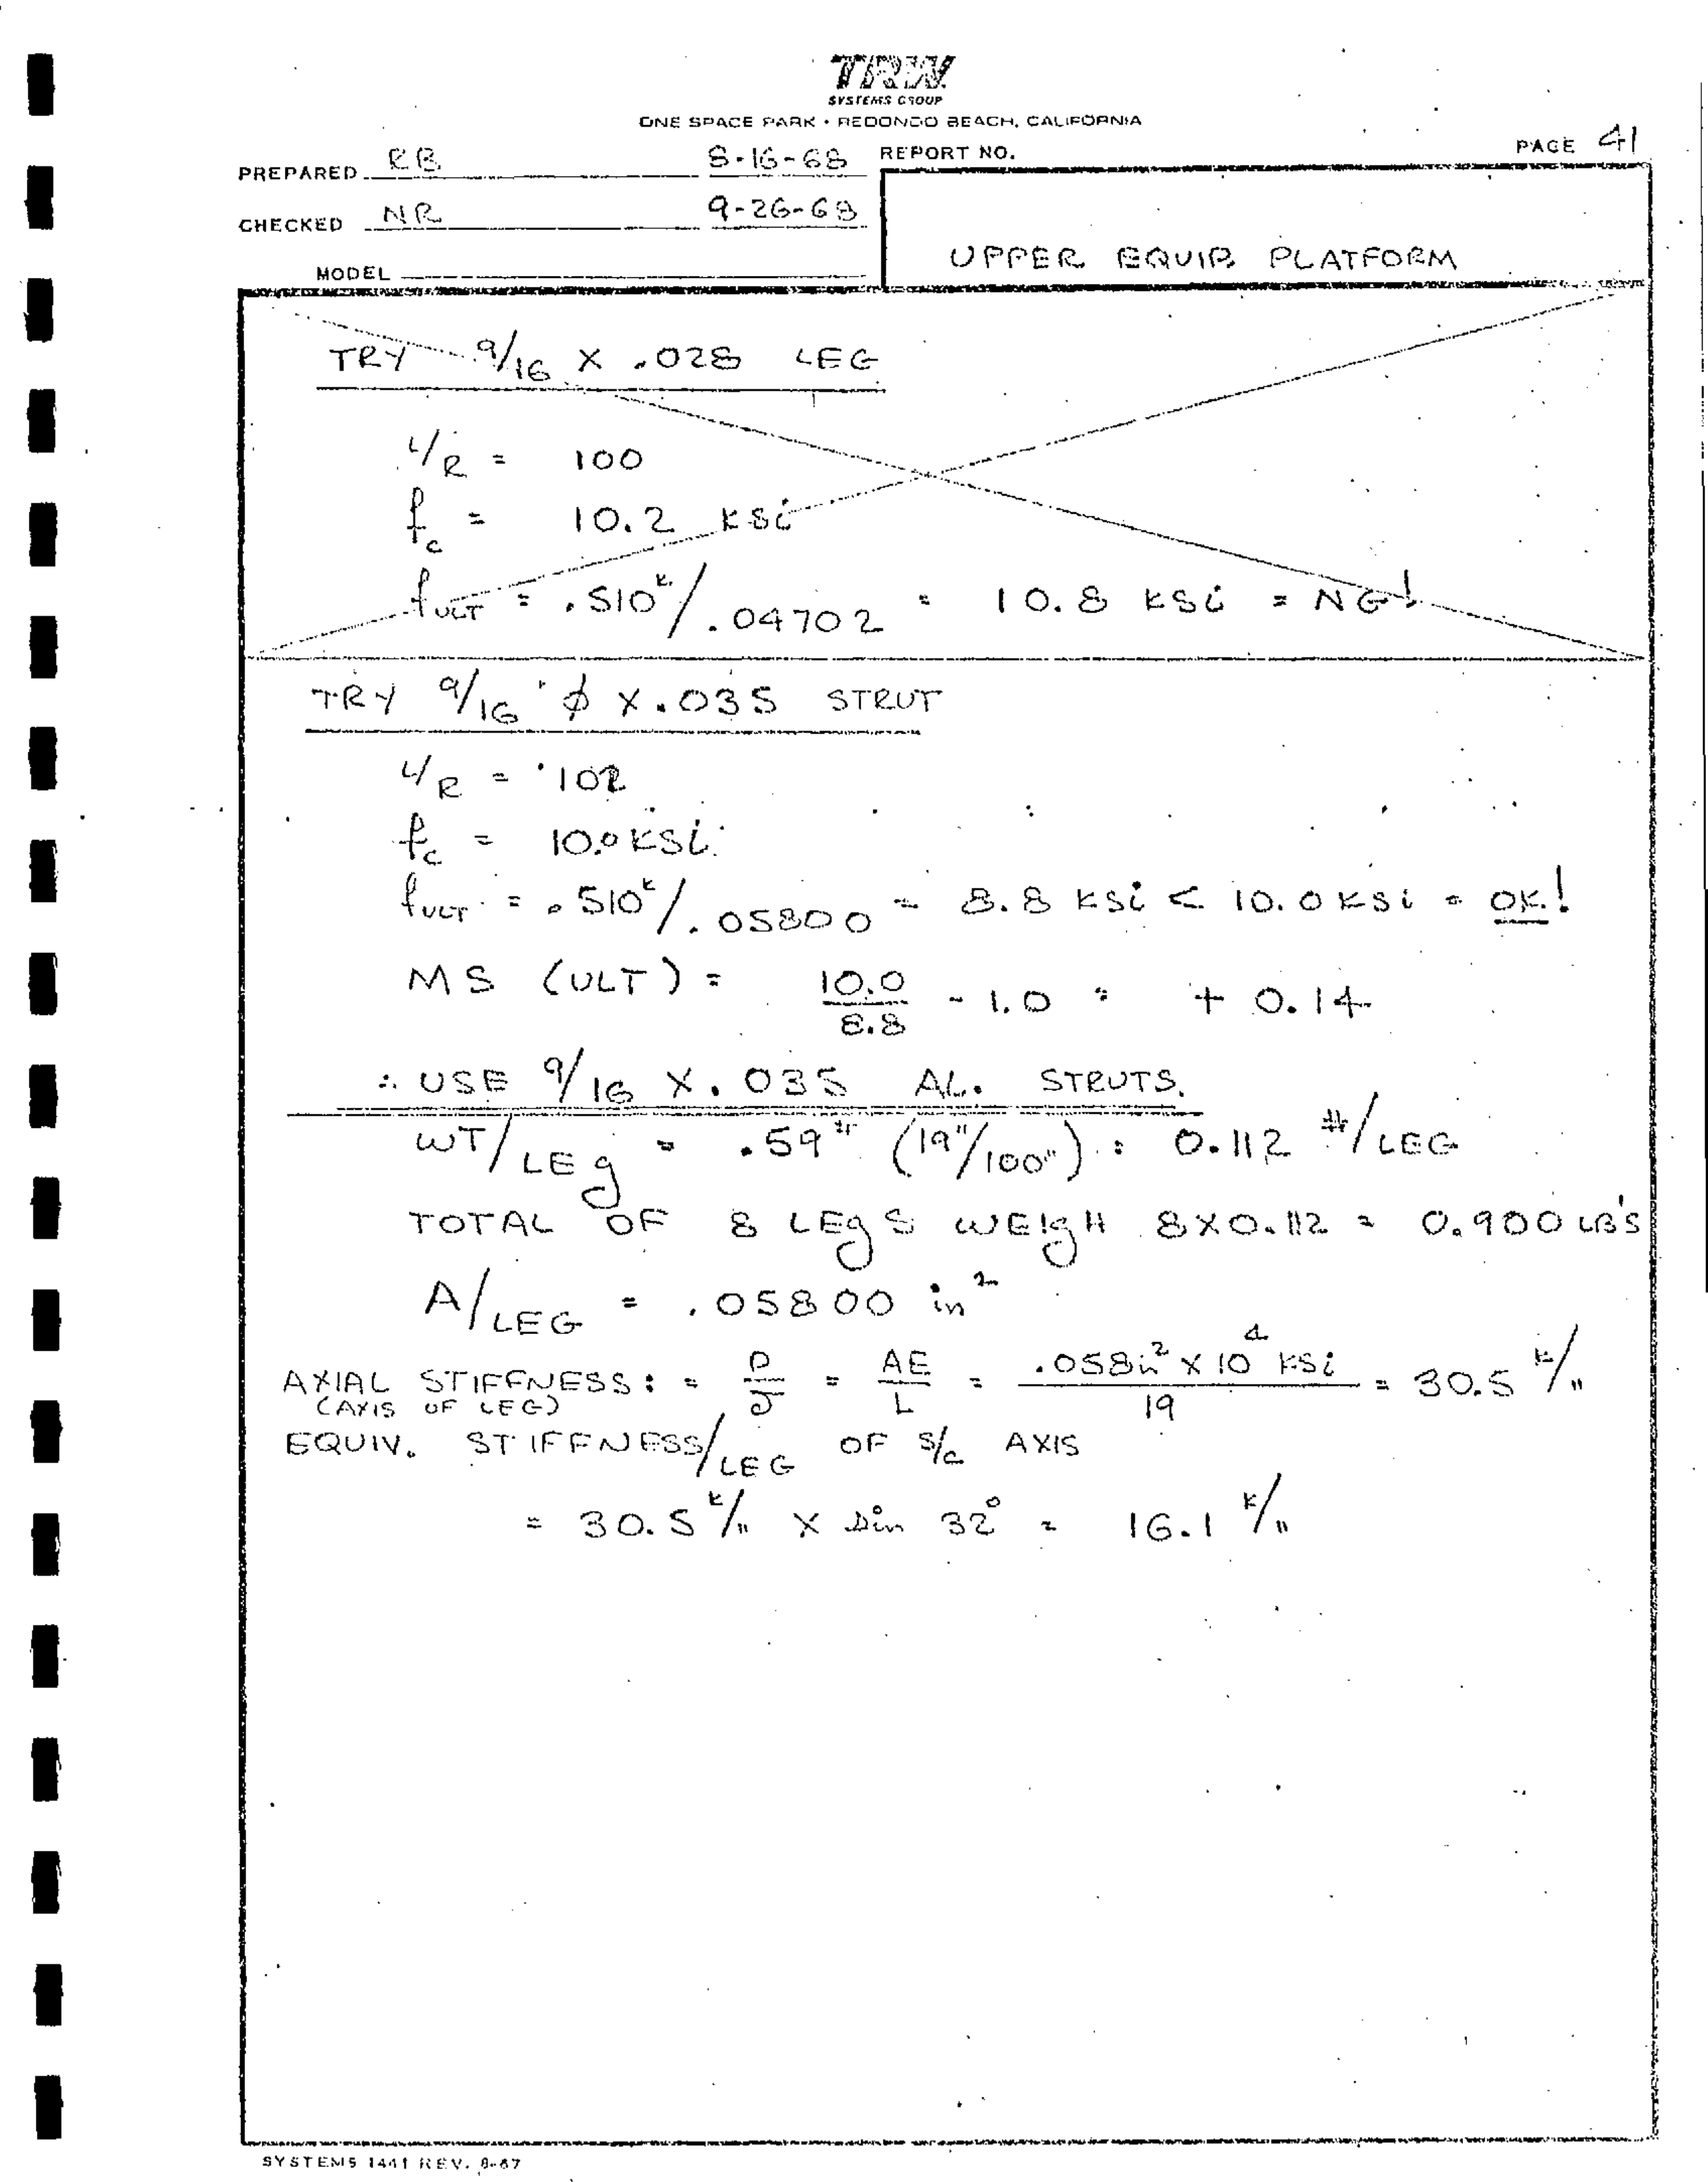 TRW
SYSTEMS GROUP
ONE SPACE PARK • REDONDO BEACH, CALIFORNIA
PAGE 41
PREPARED RB 8-16-68 REPORT NO.
CHECKED NR 9-26-68
MODEL
UPPER EQUIP PLATFORM
TRY 9/16 X .028 LEG
L/R = 100
fc = 10.2 KSi
fULT = .510k/.04702 = 10.8 KSi = NG!
TRY 9/16 ϕ X .035 STRUT
L/R = 102
fc = 10.0 KSi
fULT = .510k/.05800 = 8.8 KSi < 10.0 KSi = OK!
MS (ULT) = 10.0/8.8 - 1.0 = + 0.14
∴ USE 9/16 X .035 AL. STRUTS.
WT/LEg = .59# (19"/100") = 0.112 #/LEG
TOTAL OF 8 LEgS WEIgH 8X0.112 = 0.900 LB'S
A/LEG = .05800 in²
AXIAL STIFFNESS: = P/δ = AE/L = .058in² X 10⁴ KSi/19 = 30.5 k/"
(AXIS OF LEG)
EQUIV. STIFFNESS/LEG OF S/C AXIS
= 30.5 k/" X sin 32° = 16.1 k/"
SYSTEMS 1441 REV. 8-67